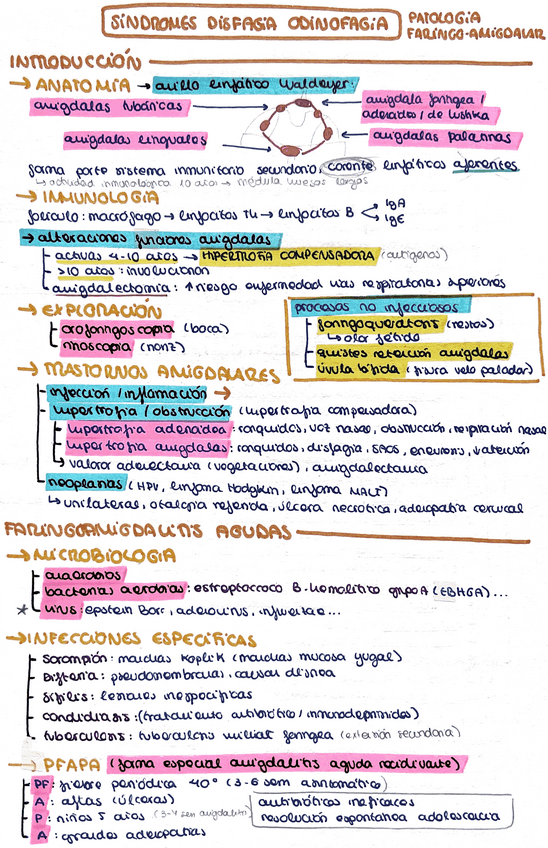 SÍNDROMES DISFAGIA ODINOFAGIA
PATOLOGIA
FARINGO-AMIGDALAR
INTRODUCCIÓN
→ ANATOMÍA → anillo linfático Waldeyer:
amígdalas tubáricas
amígdala faríngea /
adenoides / de Lushka
amígdalas linguales
amígdalas palatinas
forma parte sistema inmunitario secundario, carente linfáticos aferentes
↳ actividad inmunológica 10 años → médula huesos largos
→ INMUNOLOGIA
folículo: macrófago → linfocitos TH → linfocitos B < IgA
IgE
→ alteraciones funciones amígdalas
activas 4-10 años → HIPERTROFIA COMPENSADORA (antígenos)
>10 años: involucionan
amigdalectomía: ↑ riesgo enfermedad vías respiratorias superiores
→ EXPLORACIÓN
orofaringoscopia (boca)
rinoscopia (nariz)
procesos no infecciosos
faringoqueratosis (restos)
↳ olor fétido
quistes retención amígdalas
úvula bífida (fisura velo paladar)
→ TRASTORNOS AMIGDALARES
infección / inflamación →
hipertrofia / obstrucción (hipertrofia compensadora)
hipertrofia adenoidea: ronquidos, voz nasal, obstrucción, respiración nasal
hipertrofia amígdalas: ronquidos, disfagia, SAOS, enuresis,
↳ valorar adenectomía (vegetaciones), amigdalectomía
neoplasias (HPV, linfoma Hodgkin, linfoma MALT)
↳ unilateral, otalgia referida, úlcera necrótica, adenopatía cervical
FARINGOAMIGDALITIS AGUDAS
→ MICROBIOLOGIA
anaerobias
bacterias aerobias: estreptococo B-hemolítico grupo A (EBHGA)...
* virus: epstein Barr, adenovirus, influenzae...
→ INFECCIONES ESPECÍFICAS
Sarampión: manchas Koplik (manchas mucosa yugal)
Difteria: pseudomembranas, causas disnea
Sífilis: lesiones inespecíficas
candidiasis: (tratamiento antibiótico / inmunodeprimidos)
tuberculosis: tuberculosis miliar faríngea (extensión secundaria)
→ PFAPA (forma especial amigdalitis aguda recidivante)
PF: fiebre periódica 40° (3-6 sem asintomático)
A: aftas (úlceras)
P: niños 5 años (3-4 sem amigdalitis)
A: grandes adenopatías
antibióticos ineficaces
resolución espontánea adolescencia